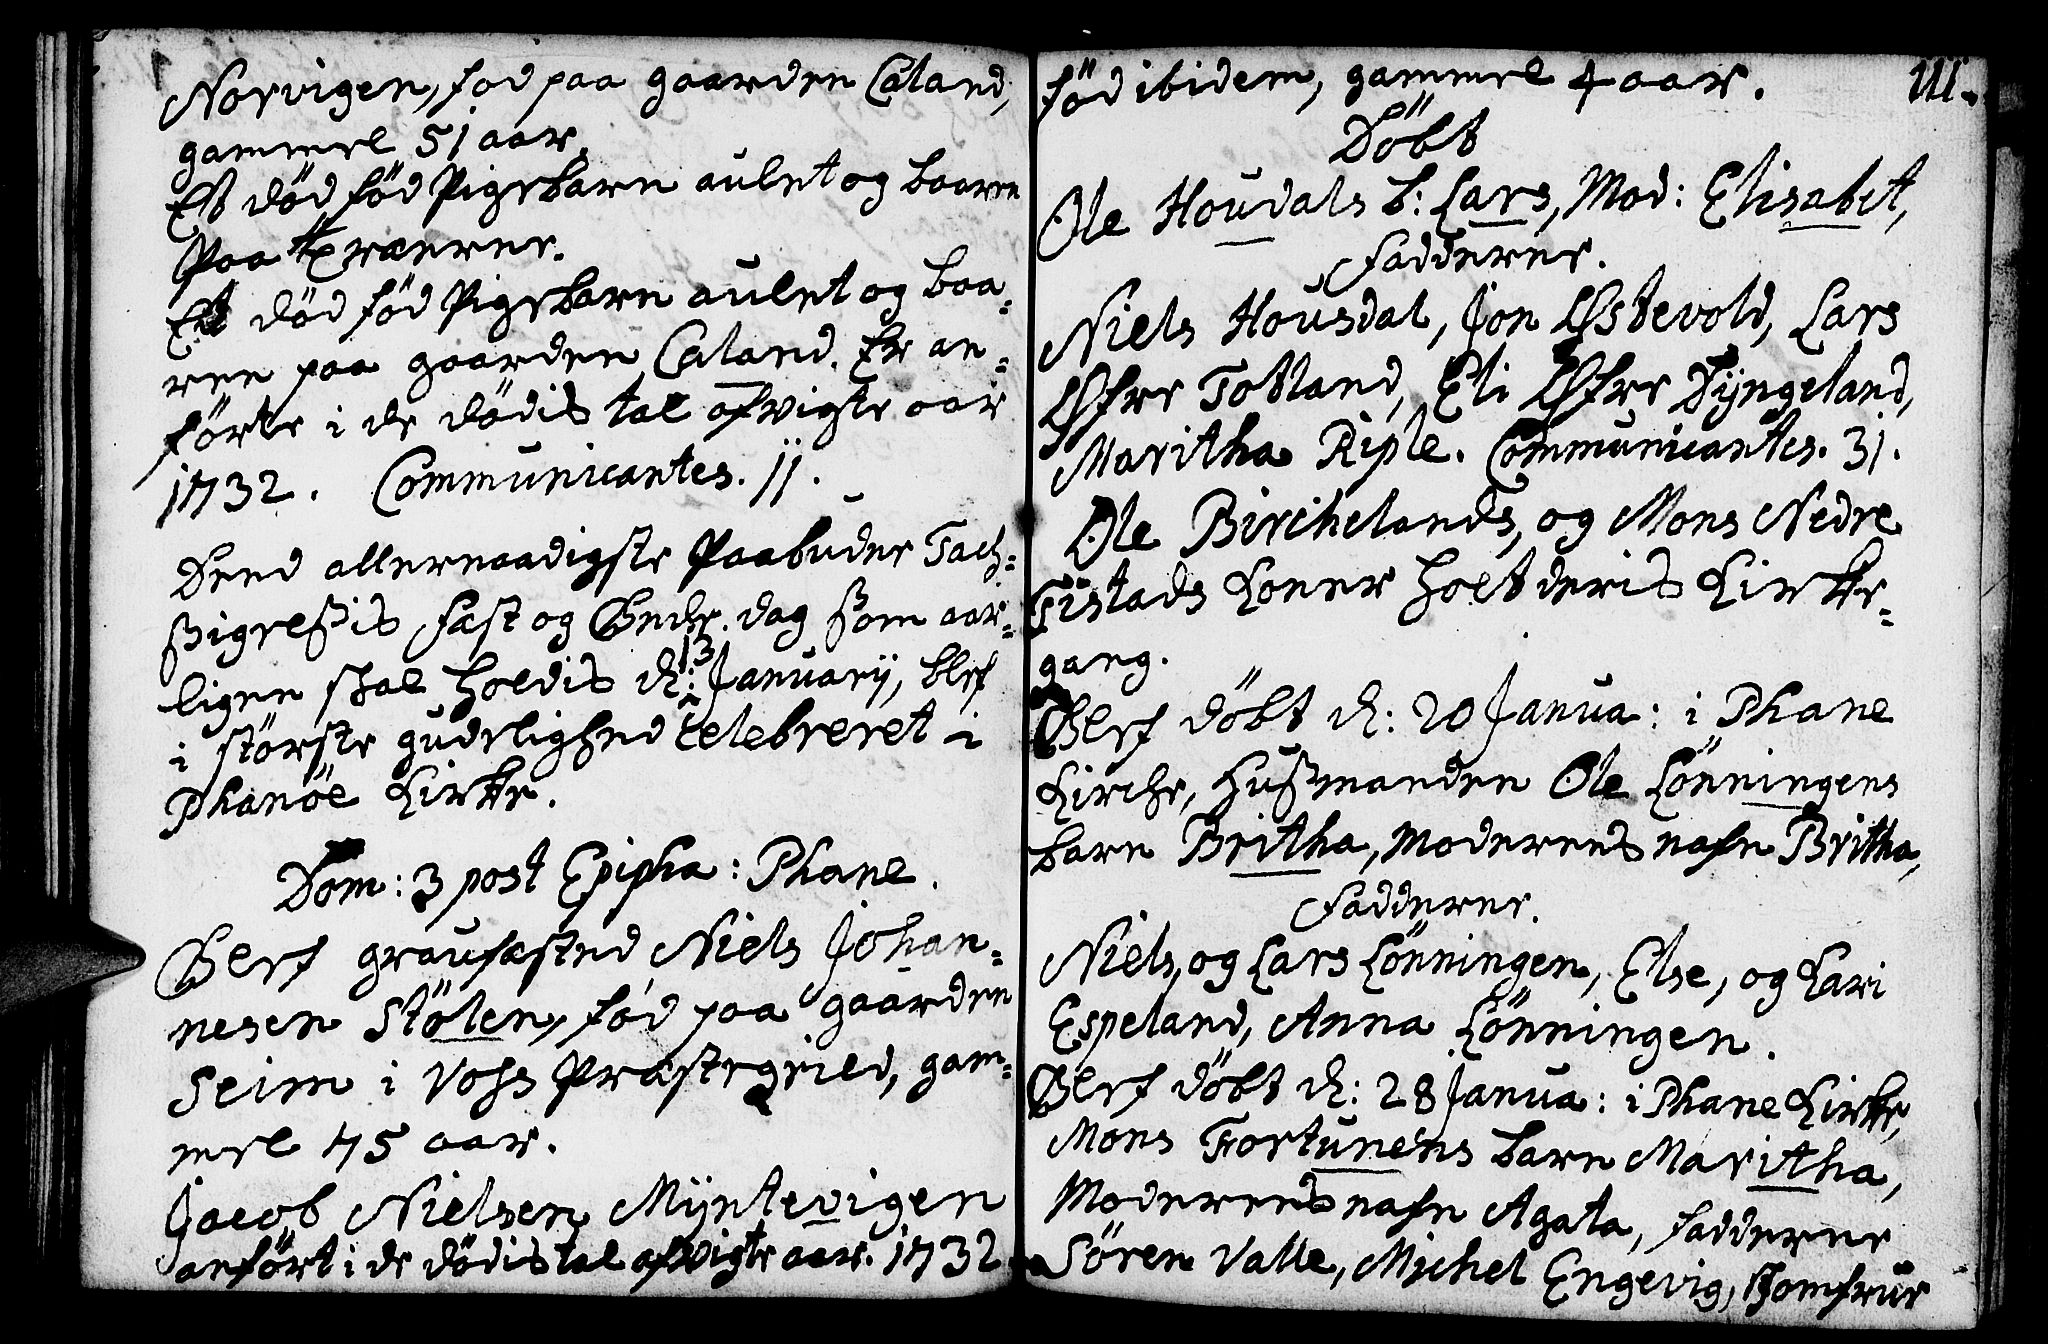 Norvigen, fød paa gaarden Caland,
gammel 51 aar.
Et død fød Pigebarn aulet og baaren
paa Trærner.
Et død fød Pigebarn aulet og baa-
ren paa gaarden Caland. Er an-
førte i de dødis tal afvigte aar
1732. Communicantes. 11.
Dend allernaadigste Paabuden Tach-
sigelsis Fæst og Bede dag som aar-
ligen skal holdis d: 13 Januarij, blef
i største gudelighed celebreret i
Phanöe Kirke.
Dom: 3 post Epipha: Phane.
Blef graufæsted Niels Johan-
nesen Stölen, fød paa gaarden
Seim i Voss Præstegield, gam-
mel 75 aar.
Jacob Nielsen Mÿntevigen
anført i de dødis tal afvigte aar. 1732
fød ibidem, gammel 4 aar. 111.
Döbt
Ole Houdals b: Lars, Mod: Elisabet,
Fadderne.
Niels Housdal, Jon Østevold, Lars
Øfre Totland, Eli Øfre Dÿngeland,
Maritha Riple. Communicantes. 31.
Ole Birchelands, og Mons Nedre
Tistads Koner holt deris Kirke-
gang.
Blef döbt d: 20 Janua: i Phane
Kirche, Hussmanden Ole Lönningens
barn Britha, Moderens nafn Britha,
Fadderne.
Niels, og Lars Lönningen, Else, og Kari
Espeland, Anna Lönningen.
Blef döbt d: 28 Janua: i Phane Kirke,
Mons Fortunens barn Maritha,
Moderens nafn Agata, Fadderne
Sören Valle, Michel Engevig, Jomfrue